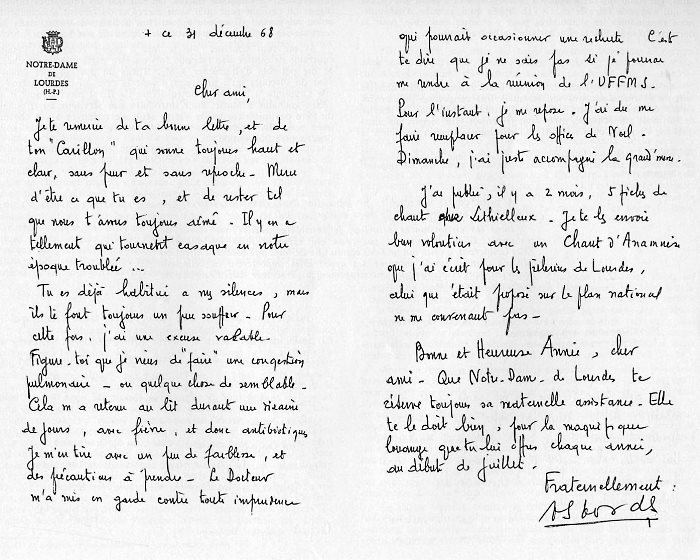 + ce 31 décembre 68
NOTRE-DAME
DE
LOURDES
(H.-P.)
Cher ami,
Je te remercie de ta bonne lettre, et de
ton "Carillon" qui sonne toujours haut et
clair, sans peur et sans reproche - Merci
d'être ce que tu es, et de rester tel
que nous t'avons toujours aimé. Il y en a
tellement qui tournent casaque en notre
époque troublée ...
Tu es déjà habitué à mes silences, mais
ils te font toujours un peu souffrir. Pour
cette fois, j'ai une excuse valable.
Figure-toi que je viens de "faire" une congestion
pulmonaire - ou quelque chose de semblable.
Cela m'a retenu au lit durant une dizaine
de jours, avec fièvre, et donc antibiotiques
Je m'en tire avec un peu de faiblesse, et
des précautions à prendre - Le Docteur
m'a mis en garde contre toute imprudence
qui pourrait occasionner une rechute C'est
te dire que je ne sais pas si je pourrai
me rendre à la réunion de l'UFFMS.
Pour l'instant, je me repose. J'ai dû me
faire remplacer pour les offices de Noël.
Dimanche, j'ai juste accompagné la grand'messe.
J'ai publié, il y a 2 mois, 5 fiches de
chant chez Lethielleux - Je te les envoie
bien volontiers avec un Chant d'Anamnèse
que j'ai écrit pour les pèlerins de Lourdes,
celui qui était proposé sur le plan national
ne me convenant pas -
Bonne et Heureuse Année, cher
ami - Que Notre-Dame de Lourdes te
réserve toujours sa maternelle assistance - Elle
te le doit bien, pour la magnifique
louange que tu lui offres chaque année,
au début de juillet.
Fraternellement :